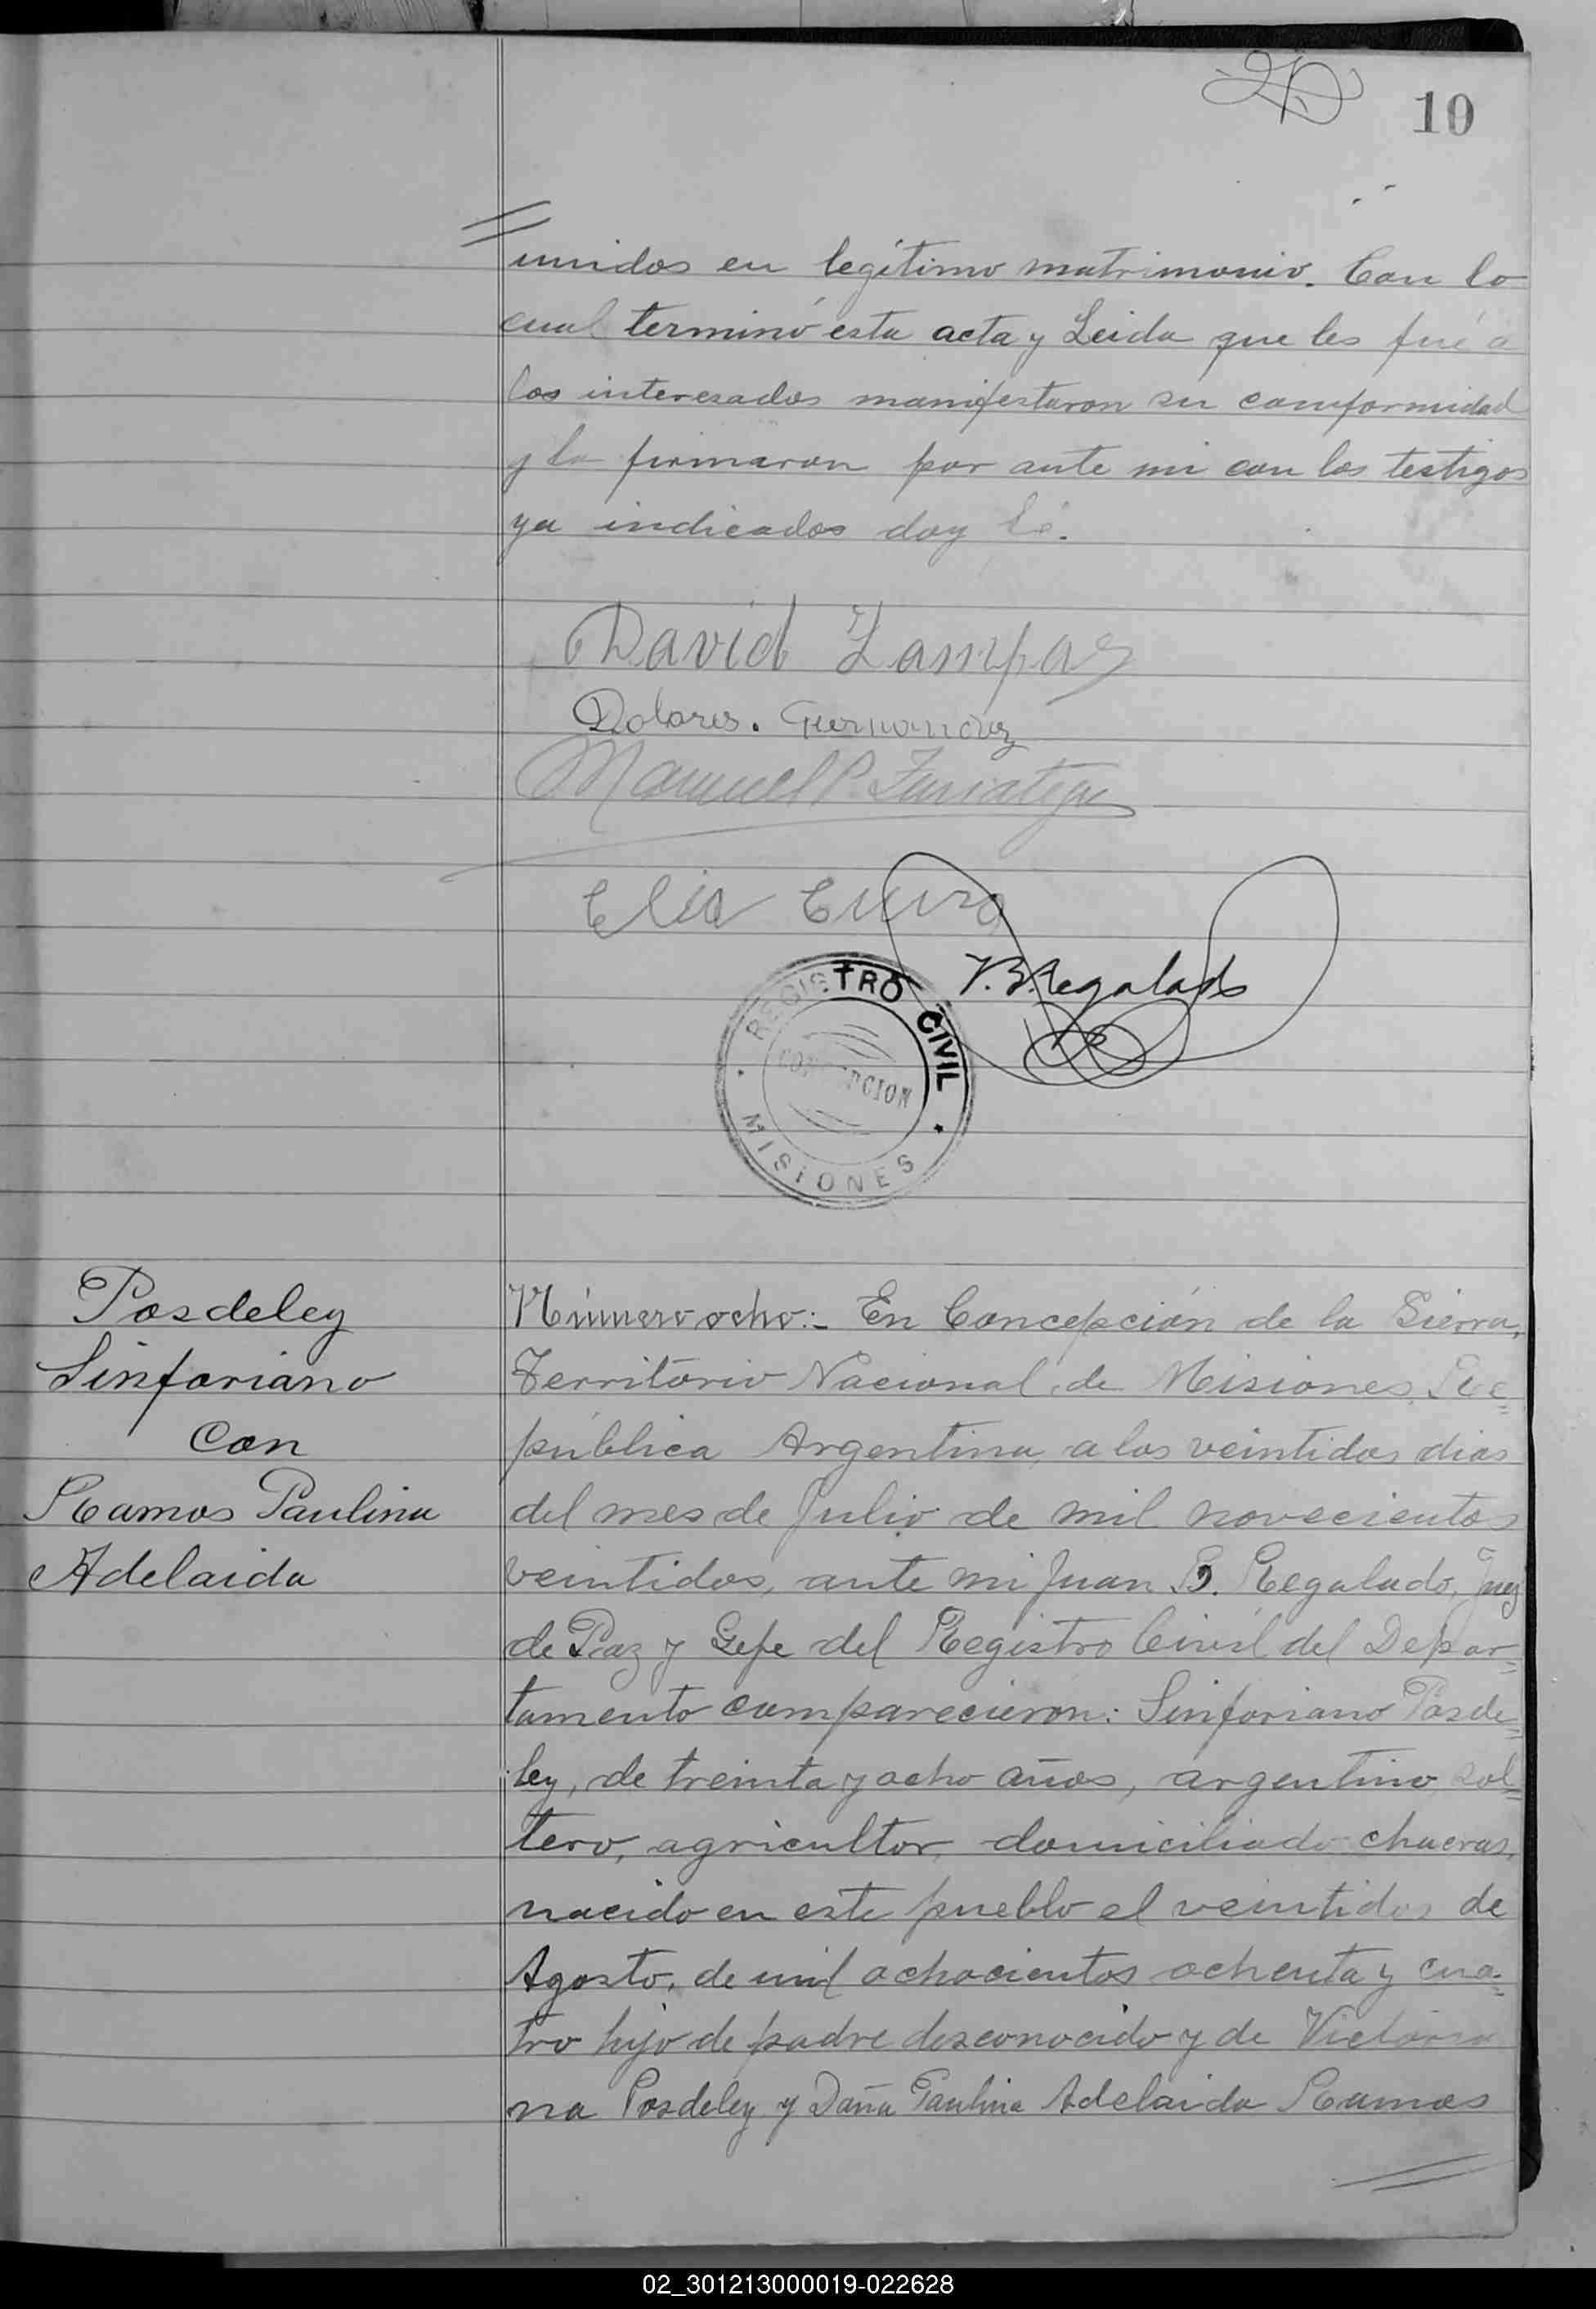 10
unidos en legítimo matrimonio. Con lo
cual terminó esta acta y Leida que les fué a
los interesados manifestaron su conformidad
y la firmaron por ante mi con los testigos
ya indicados doy fé.
David Lampaz
Dolores. Guernandez
Manuel P.
Elia
J.B. Regalado
REGISTRO CIVIL
CONCEPCION
MISIONES
Posdeley
Sinforiano
Con
Ramos Paulina
Adelaida
Número ocho:- En Concepción de la Sierra,
Territorio Nacional de Misiones, Re=
pública Argentina, a los veintidos dias
del mes de Julio de mil novecientos
veintidos, ante mi Juan B. Regalado, Juez
de Paz y Gefe del Registro Civil del Depar=
tamento comparecieron: Sinforiano Posde=
ley, de treinta y ocho años, argentino, sol=
tero, agricultor, domiciliado chacras,
nacido en este pueblo el veintidos de
Agosto, de mil ochocientos ochenta y cua=
tro hijo de padre desconocido y de Victoria
na Posdeley y Doña Paulina Adelaida Ramos
02_301213000019-022628